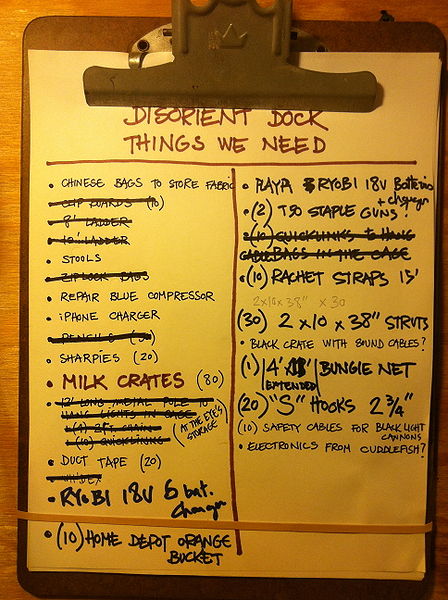 DISORIENT DOCK
THINGS WE NEED
• CHINESE BAGS TO STORE FABRIC
• CLIP BOARDS (10)
• 8' LADDER
• 10' LADDER
• STOOLS
• ZIPLOCK BAGS
• REPAIR BLUE COMPRESSOR
• iPHONE CHARGER
• PENCILS
• SHARPIES (20)
• MILK CRATES (80)
• 12' LONG METAL POLE TO
HANG LIGHTS IN CAGE
(4) 2FT. CHAIN
(10) QUICKLINKS
(AT THE EYE'S
STORAGE)
• DUCT TAPE (20)
• RYOBI 18V 6 bat.
Charger
• (10) HOME DEPOT ORANGE
BUCKET
• PLAYA RYOBI 18V Batteries
+ charger
• (2) T50 STAPLE GUNS
• (10) QUICKLINKS TO HANG
BAGS IN THE CAGE
• (10) RACHET STRAPS 15'
2x10x38" x 30
(30) 2x10x38" STRUTS
• BLACK CRATE WITH BOUND CABLES?
(1) 4'x8' BUNGIE NET
EXTENDED
(20) "S" HOOKS 2 3/4"
(10) SAFETY CABLES FOR BLACKLIGHT
CANNONS
• ELECTRONICS FROM CUDDLEFISH?